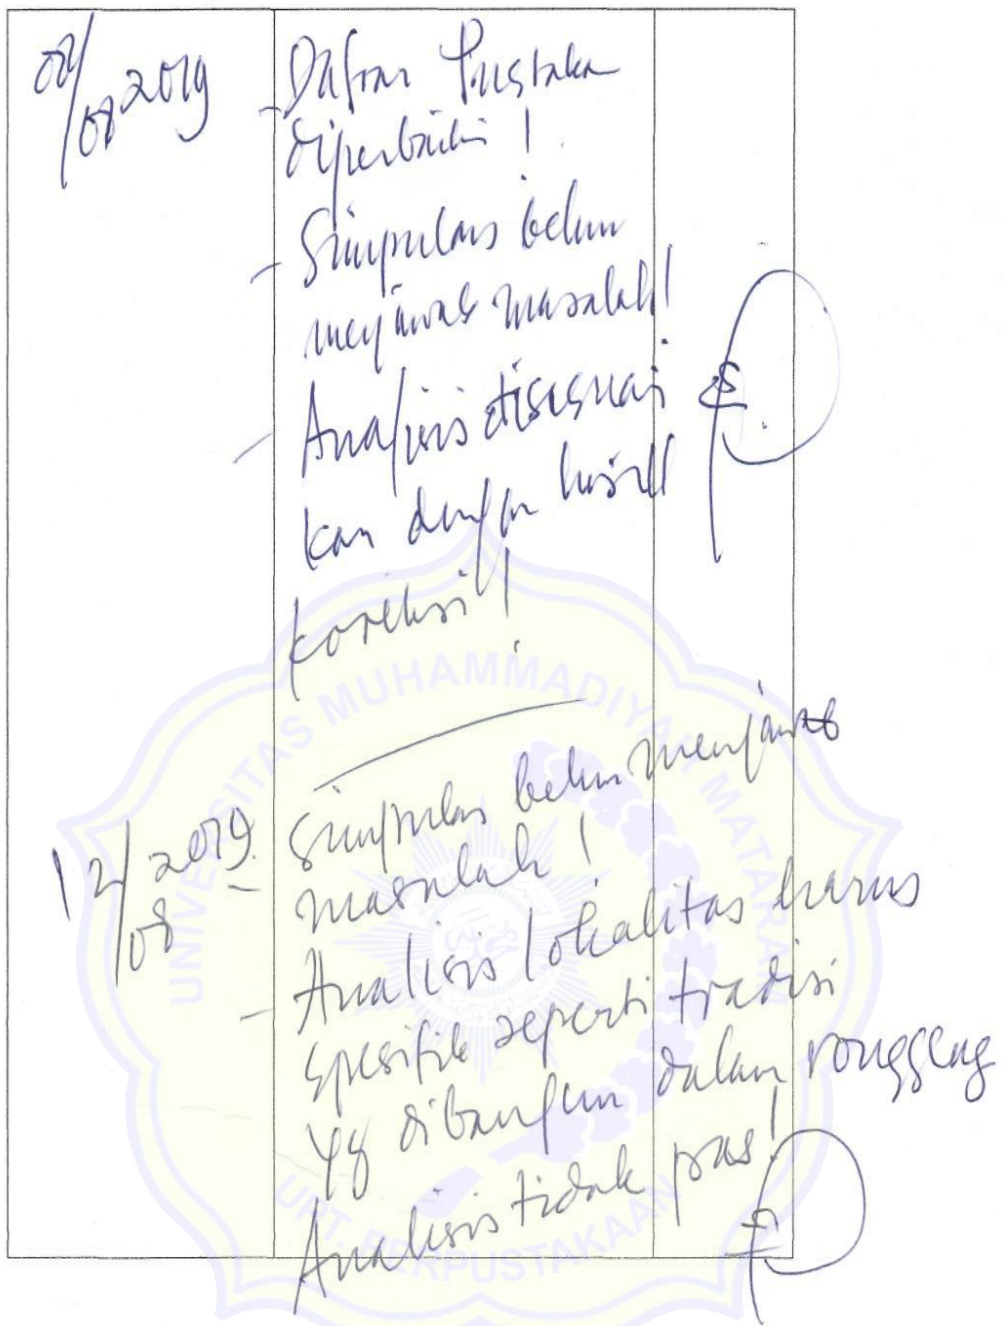 02/08 2019
- Daftar Pustaka
diperbaiki !
- Simpulan belum
menjawab masalah!
- Analisis disesuai
kan dengan hasil
koreksi !
12/08 2019
- Simpulan belum menjawab
masalah !
- Analisis lokalitas harus
spesifik seperti tradisi
yg dibangun dalam ronggeng
Analisis tidak pas!
UNIVERSITAS MUHAMMADIYAH MATARAM
UPT. PERPUSTAKAAN